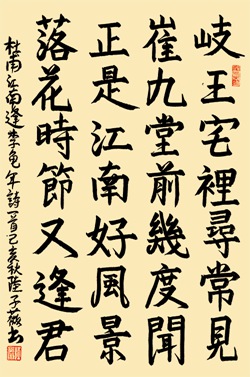 岐王宅裡尋常見
崔九堂前幾度聞
正是江南好風景
落花時節又逢君
杜甫江南逢李龜年詩一首己亥秋陸子薇書